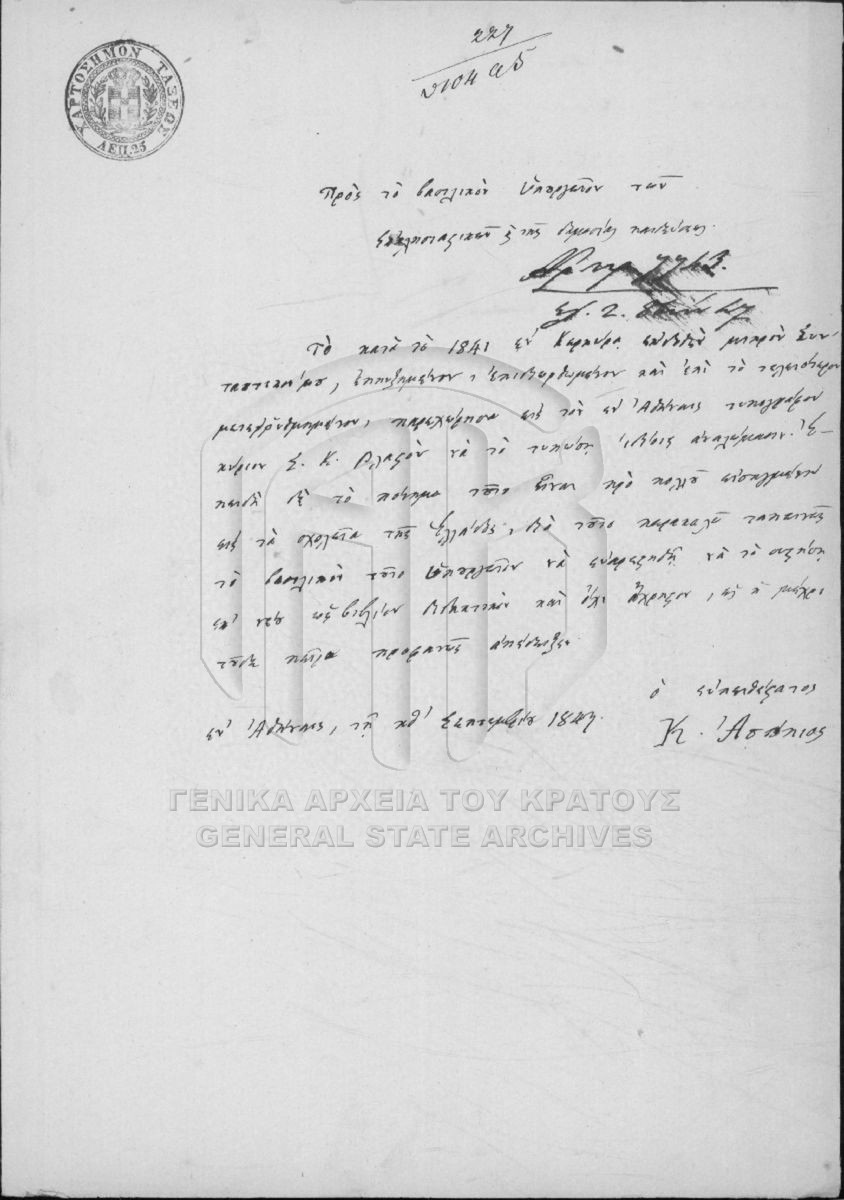 ΧΑΡΤΟΣΗΜΟΝ ΤΑΞΕΩΣ
ΛΕΠ. 25
227
Πρὸς τὸ βασιλικὸν Ὑπουργεῖον τῶν
Ἐκκλησιαστικῶν & τῆς δημοσίας παιδεύσεως.
7763.
Τὸ κατὰ τὸ 1841 ἐν Κερκύρᾳ ἐκδοθὲν μικρὸν Συν-
τακτικόν μου, ἐπηυξημένον, ἐπιδιωρθωμένον καὶ ἐπὶ τὸ τελειότερον
μετεῤῥυθμισμένον, παρεχώρησα εἰς τὸν ἐν Ἀθήναις τυπογράφον
κύριον Σ. Κ. Βλαστὸν νὰ τὸ τυπώσῃ ἰδίοις ἀναλώμασιν. Ἐ-
πειδὴ δὲ τὸ πόνημα τοῦτο εἶναι πρὸ πολλοῦ εἰσηγμένον
εἰς τὰ σχολεῖα τῆς Ἑλλάδος, διὰ τοῦτο παρακαλῶ ταπεινῶς
τὸ βασιλικὸν τοῦτο Ὑπουργεῖον νὰ εὐαρεστηθῇ νὰ τὸ συστήσῃ
ἐκ νέου ὡς βιβλίον διδακτικὸν καὶ ὄχι ἄχρηστον, ὡς ἡ μέχρι
τοῦδε πεῖρα προφανῶς ἀπέδειξε.
ὁ εὐπειθέστατος
ἐν Ἀθήναις, τῇ κθ΄ Σεπτεμβρίου 1847.
Κ. Ἀσώπιος
ΓΕΝΙΚΑ ΑΡΧΕΙΑ ΤΟΥ ΚΡΑΤΟΥΣ
GENERAL STATE ARCHIVES